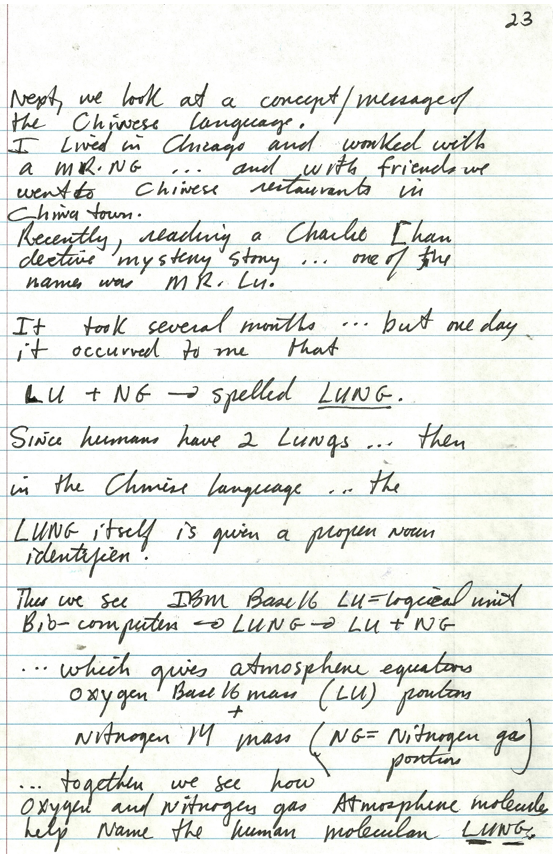 23
Next, we look at a concept/message of
the Chinese language.
I lived in Chicago and worked with
a MR. NG ... and with friends we
went to Chinese restaurants in
China town.
Recently, reading a Charlie Chan
dective mystery story ... one of the
names was MR. Lu.
It took several months ... but one day
it occurred to me that
LU + NG → spelled LUNG.
Since humans have 2 Lungs ... then
in the Chinese language ... the
LUNG itself is given a proper noun
identifier.
Thus we see IBM Base 16 LU = logical unit
Bio-computer → LUNG → LU + NG
... which gives atmosphere equations
Oxygen Base 16 mass (LU) portion
+
Nitrogen 14 mass (NG = Nitrogen gas
portion)
... together we see how
Oxygen and Nitrogen gas Atmosphere molecules
help Name the human molecular LUNGs